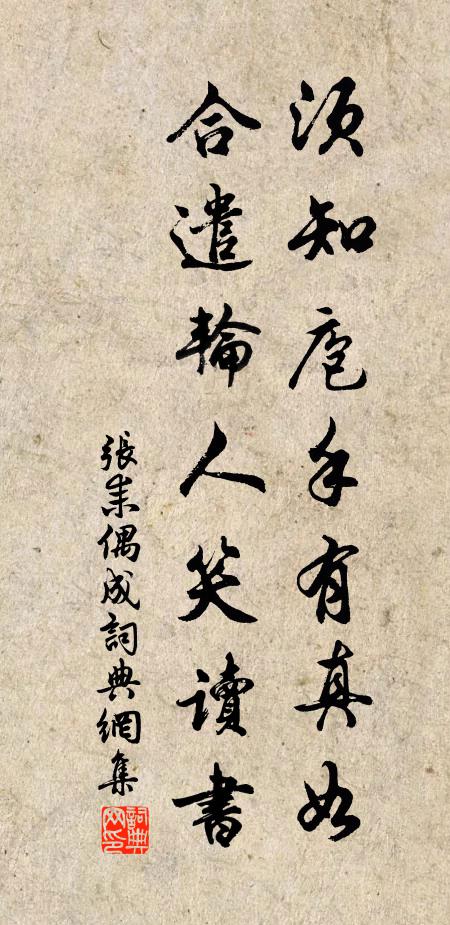 須知庖手有真如
合遣輪人笑讀書
張耒偶成詞典網集
詞典
网印